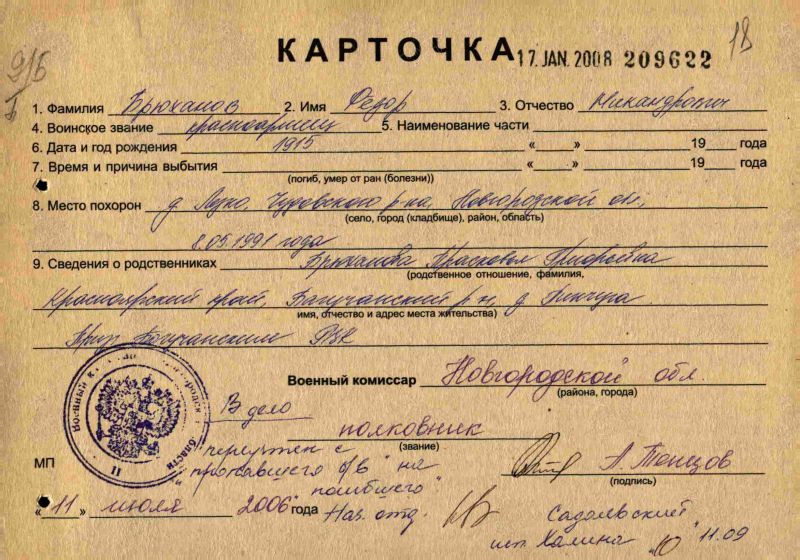 18
9/6
КАРТОЧКА 17. JAN. 2008 209622
1. Фамилия Брюханов 2. Имя Федор 3. Отчество Никандрович
4. Воинское звание красноармеец 5. Наименование части
6. Дата и год рождения 1915 « » 19 года
7. Время и причина выбытия « » 19 года
(погиб, умер от ран (болезни))
8. Место похорон д. Лезно, Чудовского р-на, Новгородской обл.,
(село, город (кладбище), район, область)
8.05.1991 года
9. Сведения о родственниках Брюханова Прасковья Григорьевна
(родственное отношение, фамилия,
Красноярский край, Богучанский р-н, д. Пинчуга.
имя, отчество и адрес места жительства)
Приз. Богучанским РВК
Военный комиссар Новгородской обл.
(района, города)
В дело
полковник
(звание)
МП
переучтен с
"пропавшего б/в" на
"погибшего"
А. Тонцов
(подпись)
«11» июля 2006 года
Наз. отд.
исп. Халина "10" 11.09